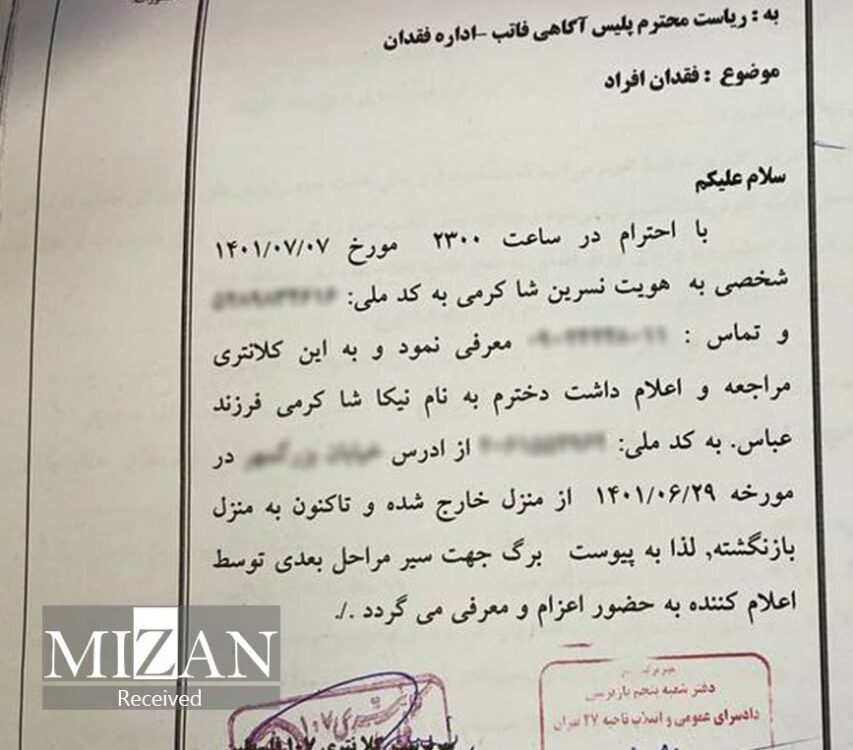 به : ریاست محترم پلیس آگاهی فاتب -اداره فقدان
موضوع : فقدان افراد
سلام علیکم
با احترام در ساعت ۲۳۰۰ مورخ ۱۴۰۱/۰۷/۰۷
شخصی به هویت نسرین شا کرمی به کد ملی:
و تماس : معرفی نمود و به این کلانتری
مراجعه و اعلام داشت دخترم به نام نیکا شا کرمی فرزند
عباس. به کد ملی: از ادرس در
مورخه ۱۴۰۱/۰۶/۲۹ از منزل خارج شده و تاکنون به منزل
بازنگشته, لذا به پیوست برگ جهت سیر مراحل بعدی توسط
اعلام کننده به حضور اعزام و معرفی می گردد ./.
MIZAN
Received
دفتر شعبه پنجم بازپرسی
دادسرای عمومی و انقلاب ناحیه ۲۷ تهران